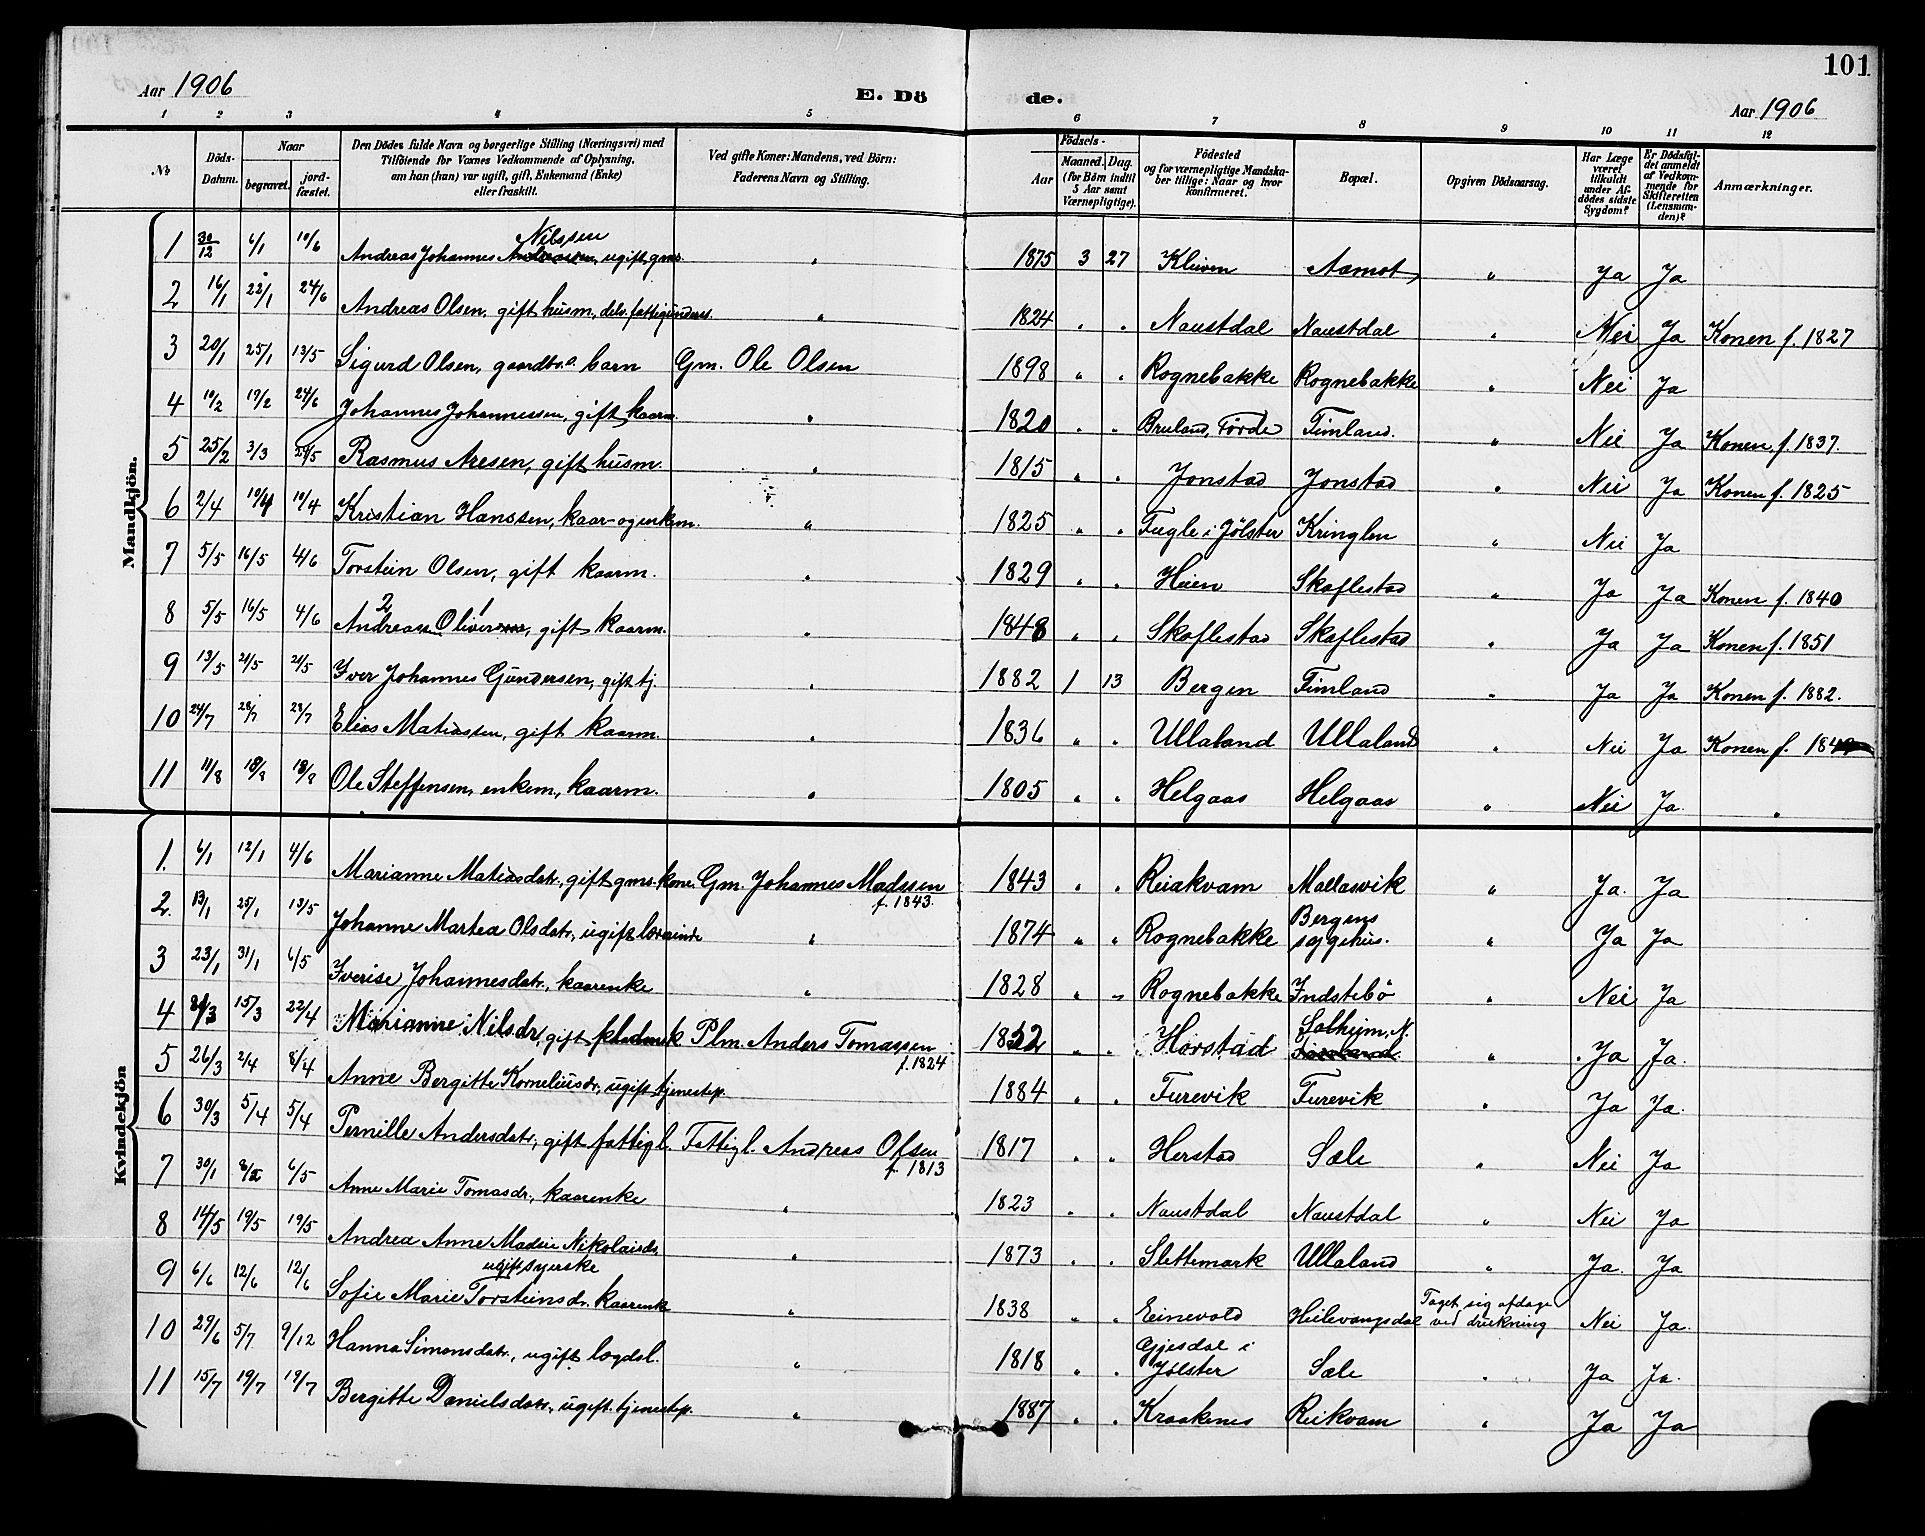 101
Aar 1906
E. Dö de.
Aar 1906
1 2 3 4 5 6 7 8 9 10 11 12
No
Döds-Datum.
Naar
begravet.
jord-fæstet.
Den Dödes fulde Navn og borgerlige Stilling (Næringsvei) med
Tilföiende for Voxnes Vedkommende af Oplysning,
om han (hun) var ugift, gift, Enkemand (Enke)
eller fraskilt.
Ved gifte Koner: Mandens, ved Börn:
Faderens Navn og Stilling.
Födsels-
Aar
Maaned. Dag.
(for Börn indtil
5 Aar samt
Værnepligtige).
Födested
og for værnepligtige Mandska-
ber tillige: Naar og hvor
konfirmeret.
Bopæl.
Opgiven Dödsaarsag.
Har Læge
været
tilkaldt
under Af-
dödes sidste
Sygdom?
Er Dödsfal-
det anmeldt
af Vedkom-
mende for
Skifteretten
(Lensman-
den)?
Anmærkninger.
Mandkjön.
1 30/12 6/1 10/6 Andreas Johannes Nilssen, ugift, gms. " 1875 3 27 Kleiven Aamot " Ja Ja
2 16/1 22/1 24/6 Andreas Olsen, gift husm., delv. fattigunderst. " 1824 " " Naustdal Naustdal " Nei Ja Konen f. 1827
3 20/1 25/1 13/5 Sigurd Olsen, gaardbr. barn Gm. Ole Olsen 1898 " " Rognebakke Rognebakke " Nei Ja
4 10/2 19/2 24/6 Johannes Johannessen, gift kaarm. " 1820 " " Bruland, Førde Fimland. " Nei Ja Konen f. 1837.
5 25/2 3/3 24/5 Rasmus Aresen, gift husm. " 1815 " " Jonstad Jonstad " Nei Ja Konen f. 1825
6 2/4 10/4 10/4 Kristian Hanssen, kaar- og enkem. " 1825 " " Fugle i Jölster Kringlen " Nei Ja
7 5/5 16/5 4/6 Torstein Olsen, gift kaarm. " 1829 " " Heien Skaflestad " Ja Ja Konen f. 1840
8 5/5 16/5 4/6 2 Andreas 1 Oliver, gift kaarm. " 1848 " " Skaflestad Skaflestad " Ja Ja Konen f. 1851
9 13/5 21/5 21/5 Iver Johannes Gundersen, gift tj. " 1882 1 13 Bergen Fimland " Ja Ja Konen f. 1882.
10 24/7 28/7 28/7 Elias Matiassen, gift kaarm. " 1836 " " Ullaland Ullaland " Nei Ja Konen f.
11 11/8 18/8 18/8 Ole Steffensen, enkem., kaarm. " 1805 " " Helgaas Helgaas " Nei Ja. "
Kvindekjön
1. 6/1 12/1 4/6 Marianne Matiasdatr., gift gms. kone. Gm. Johannes Madssen f. 1843. 1843 " " Reiakvam Mallasvik " Ja. Ja
2. 13/1 25/1 13/5 Johanne Martea Olsdatr., ugift lærerinde " 1874 " " Rognebakke Bergens sygehus. " Ja Ja
3 23/1 31/1 6/5 Iverise Johannesdatr., kaarenke " 1828 " " Rognebakke Indstebö " Nei Ja
4 15/3 22/4 Marianne Nilsdr., gift Plm. Anders Tomassen f. 1824 " " Horstad Solheim, N. " Ja Ja.
5 26/3 2/4 8/4 Anne Bergitte Korneliusdr., ugift tjenestep. 1884 " " Furevik Furevik " Ja Ja.
6 30/3 5/4 5/4 Pernille Andersdatr., gift fattigl. Fattigl. Andreas Olsen f. 1813 1817 " " Herstad Sæle " Nei Ja
7 30/1 8/2 6/5 Anne Marie Tomasdr., kaarenke " 1823 " " Naustdal Naustdal " Nei Ja
8 14/5 19/5 19/5 Andrea Anne Madsie Nikolaisdr. ugift syerske " 1873 " " Slettemark Ullaland " Ja. Ja
9 6/6 12/6 12/6 Sofie Marie Torsteinsdr. kaarenke " 1838 " " Einevold Heilevangsdal Taget sig afdage ved drukning Nei Ja.
10 29/6 5/7. 9/12 Hanna Simonsdatr., ugift lægdsl. " 1818 " " Gjesdal i Jölster Sæle " Ja Ja.
11 15/7 19/7 19/7 Bergitte Danielsdatr., ugift. tjenestep. " 1887 " " Kraakenes Reikvam " Ja Ja